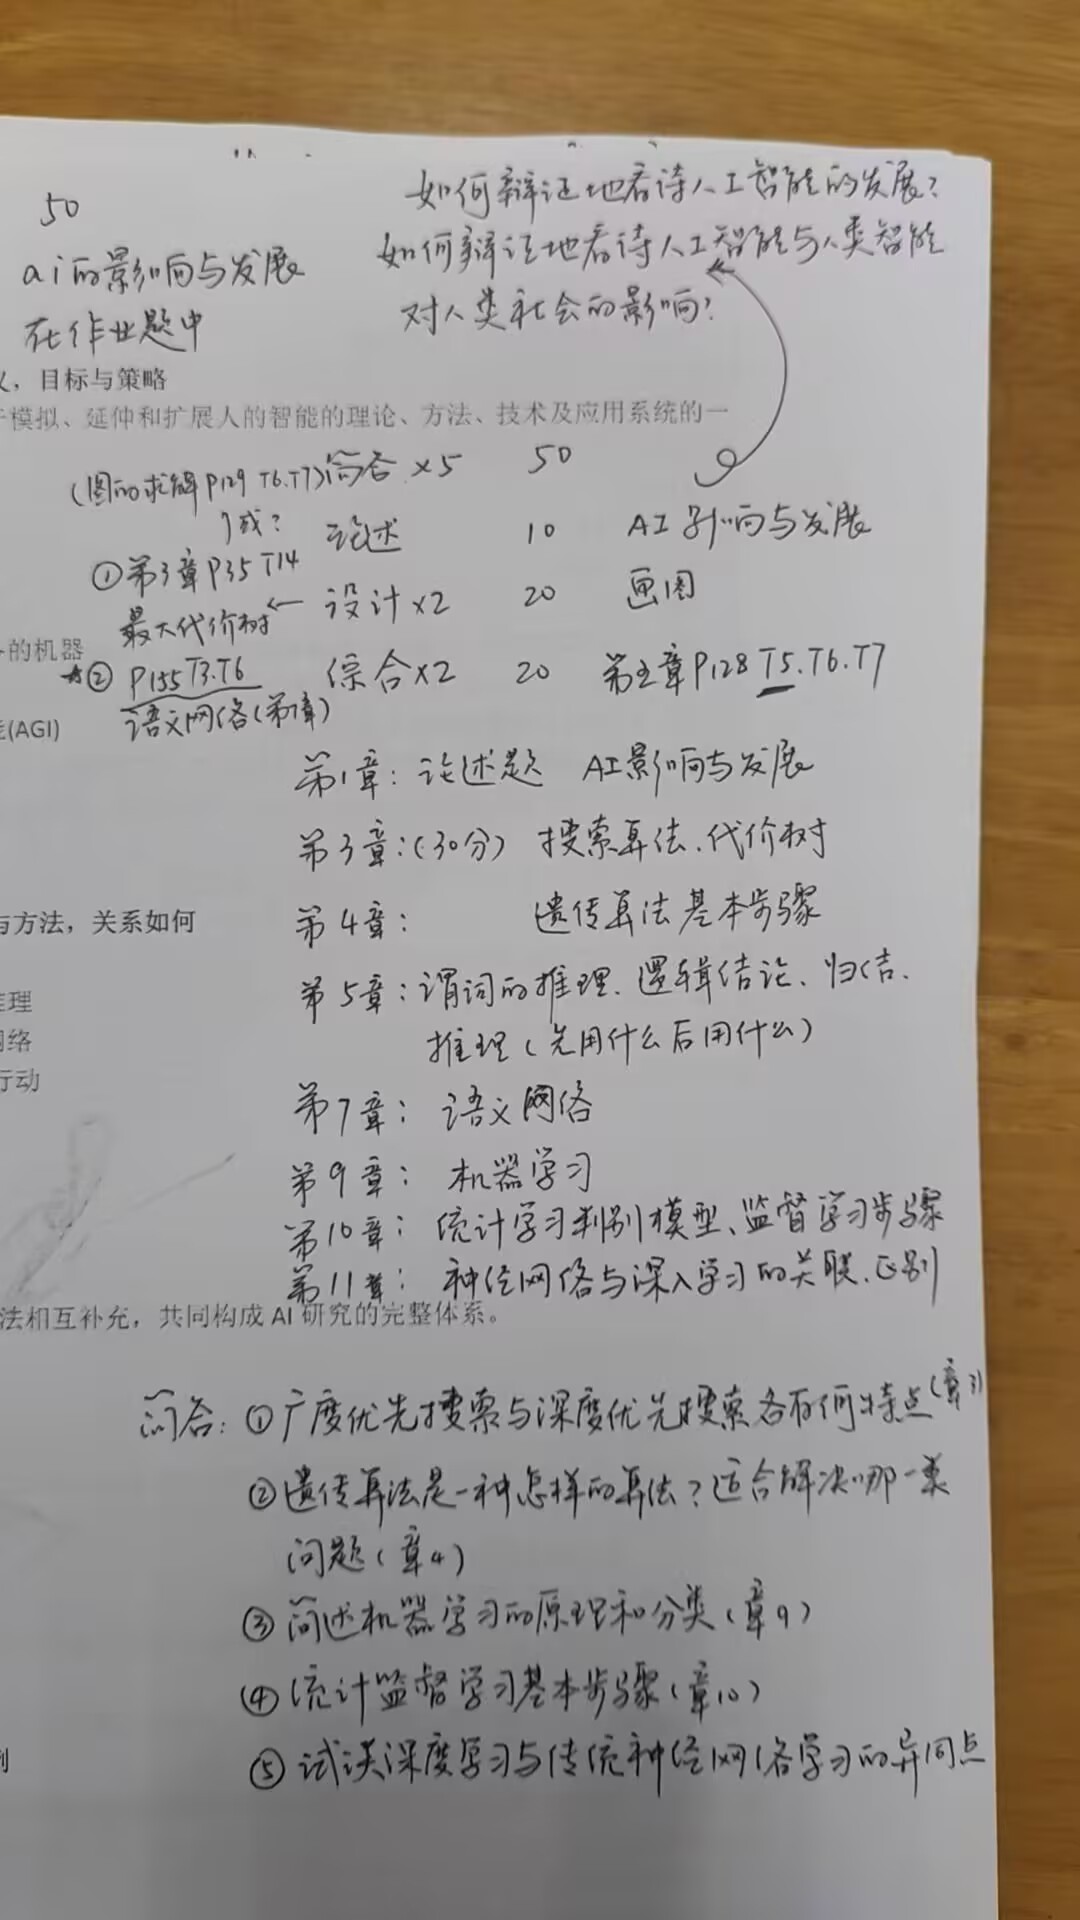 如何辩证地看待人工智能的发展？
50
如何辩证地看待人工智能与人类智能
ai的影响与发展
对人类社会的影响？
在作业题中
，目标与策略
模拟、延伸和扩展人的智能的理论、方法、技术及应用系统的一
(图的求解P129 T6.T7)简答×5 50
或？
论述 10 AI影响与发展
①第3章P35 T14
最大代价树← 设计×2 20 画图
的机器
②P155 T3.T6 综合×2 20 第五章P128 T5.T6.T7
语义网络(第7章)
(AGI)
第1章：论述题 AI影响与发展
第3章：(30分) 搜索算法、代价树
与方法，关系如何
第4章： 遗传算法基本步骤
第5章：谓词的推理、逻辑结论、归结、
推理
推理(先用什么后用什么)
网络
行动
第7章：语义网络
第9章：机器学习
第10章：统计学习判别模型、监督学习步骤
第11章：神经网络与深入学习的关联、区别
法相互补充，共同构成AI研究的完整体系。
简答：①广度优先搜索与深度优先搜索各有何特点(章3)
②遗传算法是一种怎样的算法？适合解决哪一类
问题(章4)
③简述机器学习的原理和分类(章9)
④统计监督学习基本步骤(章10)
⑤试谈深度学习与传统神经网络学习的异同点